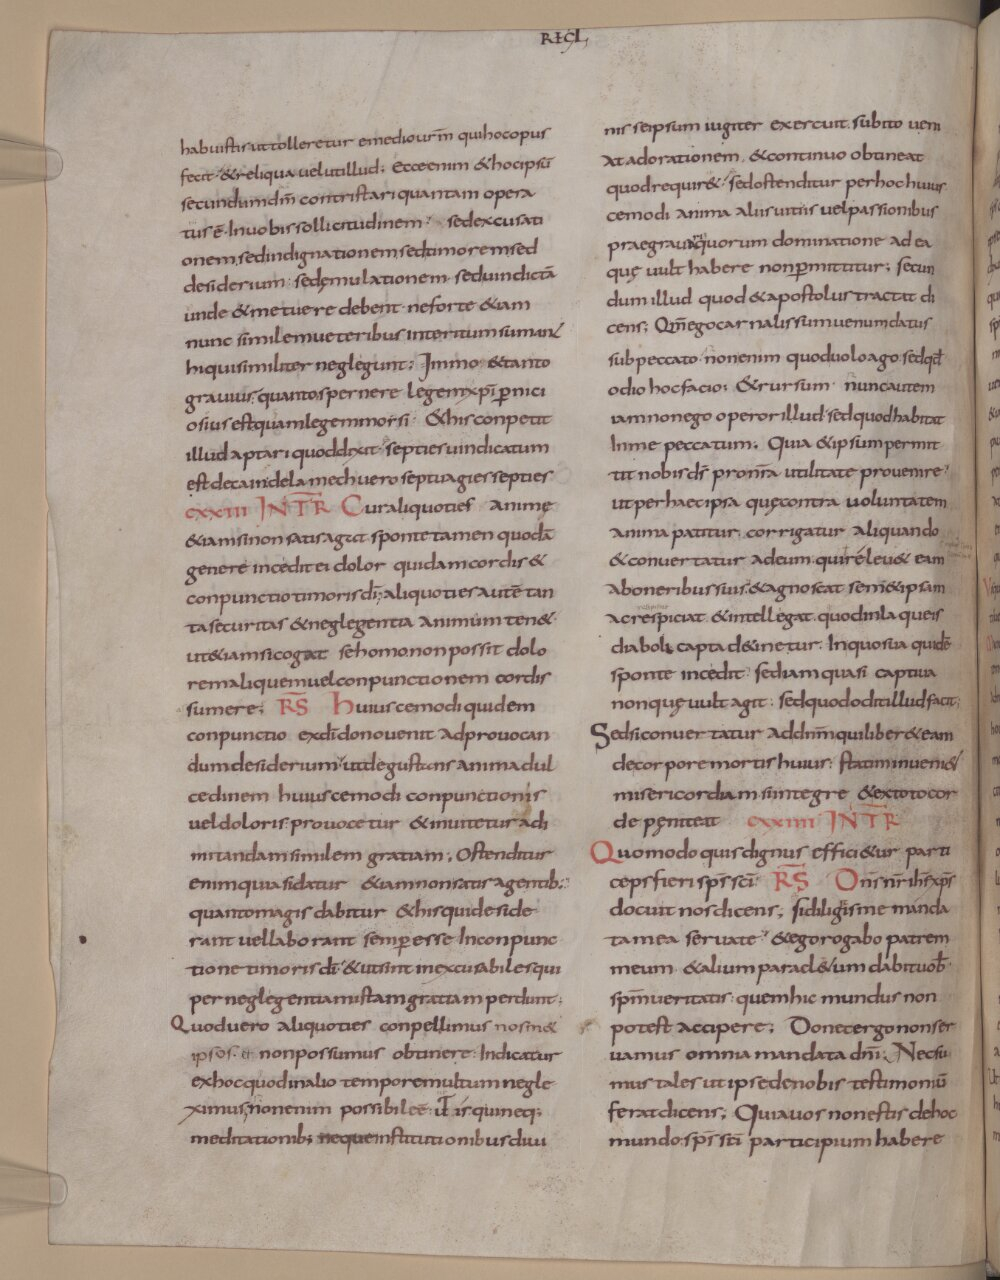 REGL
habuistis ut tolleretur e medio ur̄m qui hoc opus
fecit · & reliqua uel ut illud; Ecce enim & hoc ipsū
secundum dm̄ contristari quantam opera
tus ē · In uobis sollicitudinem? sed excusati
onem, sed indignationem sed timorem sed
desiderium · sed ęmulationem sed uindictā
unde & metuere debent · ne forte & iam
nunc similem ueteribus interitum sumant
hi qui similiter neglegunt; Immo & tanto
grauius, quanto spernere legem xp̄i pernici
osius est quam legem morsi · & his conpetit
illud aptari quod dixit · septies uindicatum
est de cain de lamech uero septuagies septies
cxxiii INTR̄ Cur aliquoties animę
& iam si non satis agat sponte tamen quodā
genere incedit ei dolor quidam cordis &
conpunctio timoris dī; aliquoties autē tan
ta securitas & neglegentia animum ten&
ut & iam si cogat se homo non possit dolo
rem aliquem uel conpunctionem cordis
sumere; RS̄ Huiuscemodi quidem
conpunctio ex dī dono uenit ad prouocan
dum desiderium ut degustans anima dul
cedinem huiuscemodi conpunctionis
uel doloris, prouocetur & inuitetur ad i
mitandam similem gratiam; Ostenditur
enim quia si datur & iam non satis agentib;
quanto magis dabitur & his qui deside
rant uel laborant semper esse In conpunc
tione timoris dī · & ut sint inexcusabiles qui
per neglegentiam istam gratiam perdunt;
Quod uero aliquoties conpellimus nosm&
ipsos · et non possumus obtinere · Indicatur
ex hoc quod in alio tempore multum negle
ximus, non enim possibile ē ut is qui neq;
meditationib; neque institutionibus diui
nis se ipsum iugiter exercuit, subito ueni
at ad orationem, & continuo obtineat
quod requir& · sed ostenditur per hoc huius
cemodi anima aliis uitiis uel passionibus
praegrauari quorum dominatione ad ea
quę uult habere non permittitur; secun
dum illud quod & apostolus tractat di
cens; Qm̄ ego carnalis sum uenumdatus
sub peccato · non enim quod uolo ago · sed qd̄
odio hoc facio; & rursum nunc autem
iam non ego operor illud · sed quod habitat
In me peccatum; Quia & ipsum permit
tit nobis ds̄ pro nr̄a utilitate prouenire?
ut per haec ipsa quę contra uoluntatem
anima patitur, corrigatur aliquando
& conuertatur ad eum, qui releu& eam
ab oneribus suis, & agnoscat sem& ipsam
ac respiciat & intellegat, quod in laqueis
diaboli, capta d&inetur · In quo sua quidē
sponte incedit · sed iam quasi captiua
non quę uult agit · sed quod odit illud facit;
Sed si conuertatur ad dn̄m qui liber& eam
de corpore mortis huius; statim inueni&
misericordiam si integre & ex toto cor
de pęniteat cxxiiii INTR̄
Quomodo quis dignus effici&ur parti
ceps fieri sp̄s sc̄i RS̄ Dn̄s nr̄ ih̄s xp̄s
docuit nos dicens; si diligitis me manda
ta mea seruate? & ego rogabo patrem
meum · & alium paracl&um dabit uob̄
sp̄m ueritatis · quem hic mundus non
potest accipere; Donec ergo non ser
uamus omnia mandata dn̄i; Nec su
mus tales ut ipse de nobis testimoniū
ferat dicens; Quia uos non estis de hoc
mundo, sp̄s sc̄i participium habere